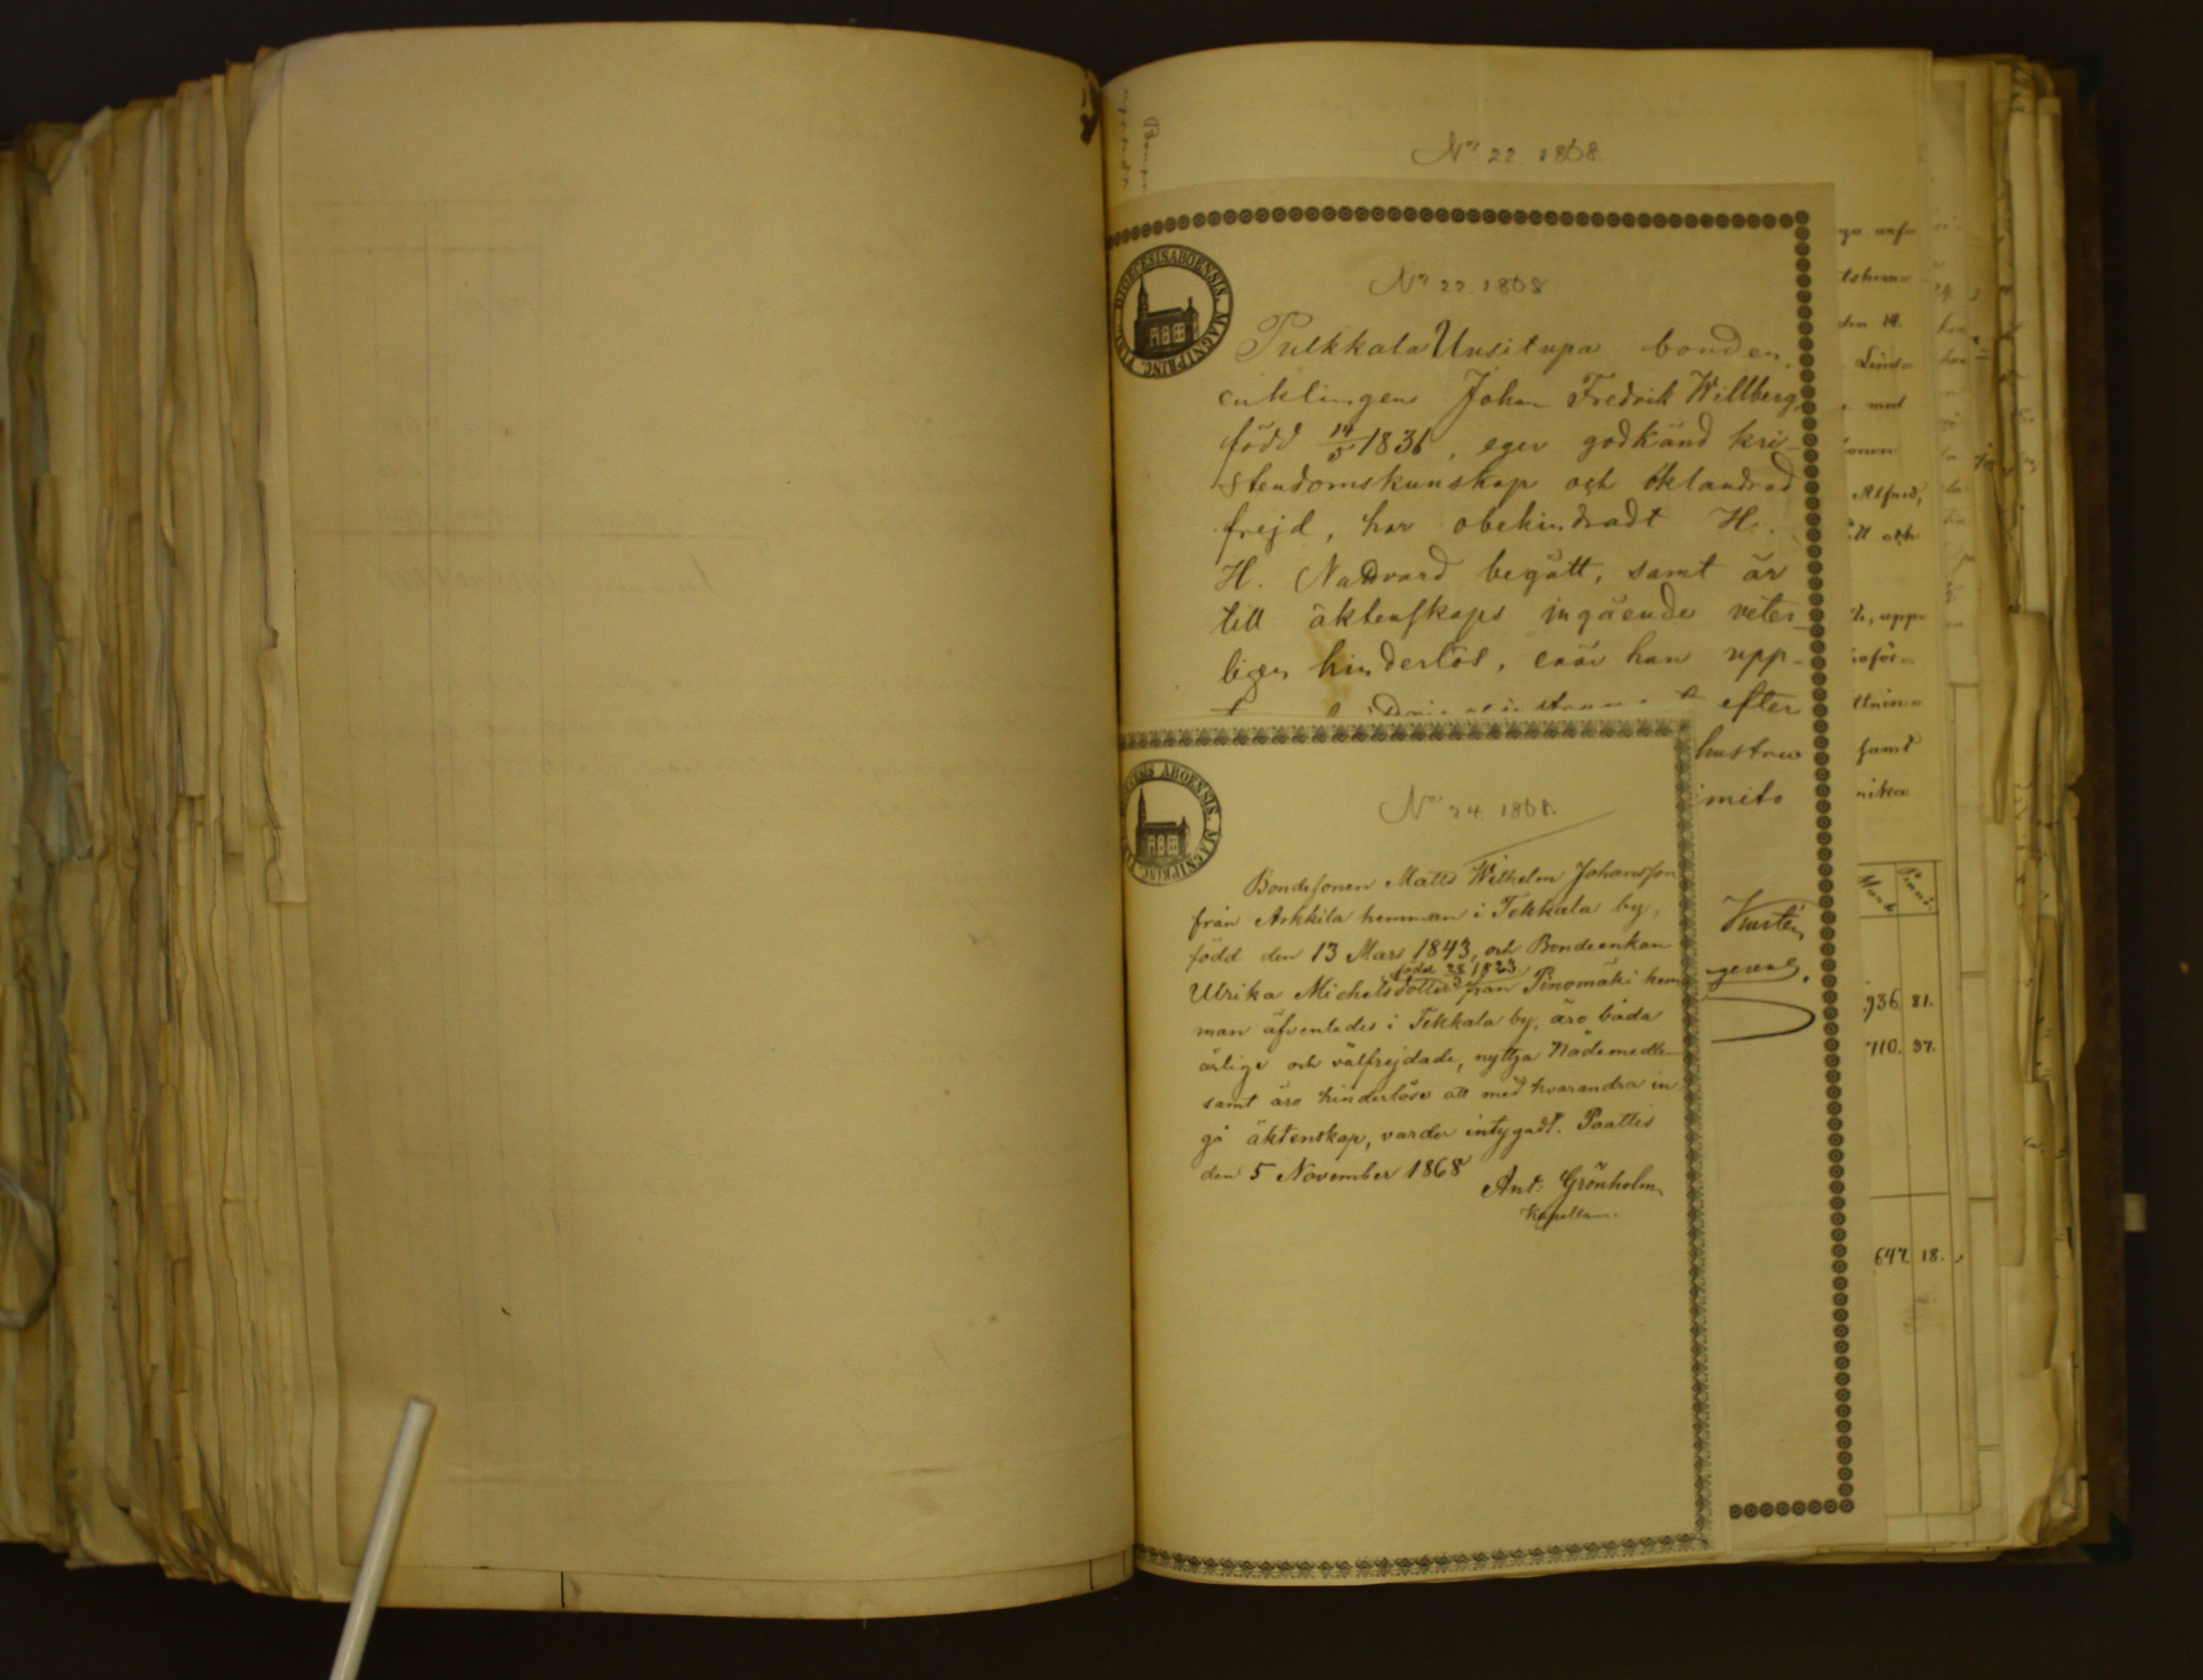 No 22. 1868.
DIOECESIS ABOENSIS. MAGNI PRINC. FINL.
No 22. 1868
Pulkkala Uusitupa bonden,
enklingen Johan Fredrik Willberg,
född 14/5 1836, eger godkänd kri-
stendomskunskap och oklandrad
frejd, har obehindradt H.
H. Nattvard begått, samt är
till äktenskaps ingående veter-
ligen hinderlös, enär han upp-
efter
hustru
mito
gerens.
No 24. 1868.
DIOECESIS ABOENSIS. MAGNI PRINC. FINL.
Bondesonen Matts Wilhelm Johansson
från Arkkila hemman i Tekkala by,
född den 13 Mars 1843, och Bondeenkan
född 1823
Ulrika Michelsdotter från Pinomäki hem
man äfvenledes i Tekkala by, äro båda
ärlige och välfrejdade, nyttja Nådemedlen
samt äro hinderlöse att med hvarandra in
gå äktenskap, varder intygadt. Paattis
den 5 November 1868
Ant: Grönholm
Kapellan.
den 14.
med
Alfred,
samt
Mark Penni
936 81.
710. 37.
647. 18.